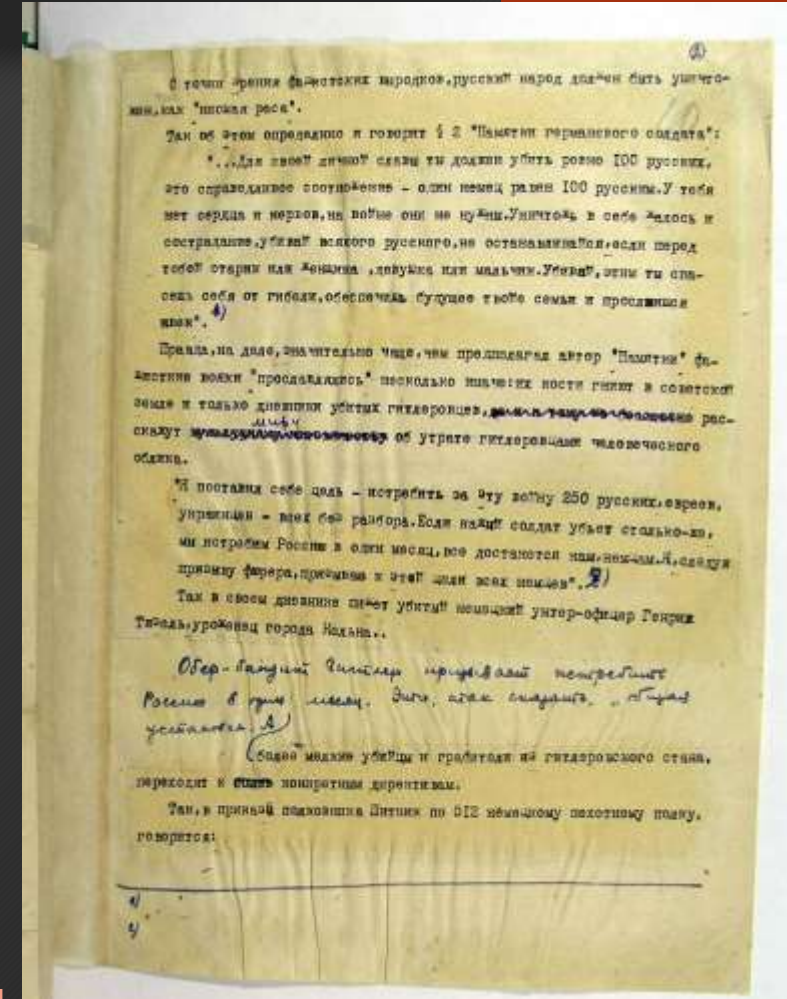 (2)
С точки зрения фашистских выродков,русский народ должен быть уничто-
жен,как "низшая раса".
Так об этом определенно и говорит § 2 "Памятки германского солдата":
"...Для твоей личной славы ты должен убить ровно 100 русских,
это справедливое соотношение - один немец равен 100 русским.У тебя
нет сердца и нервов,на войне они не нужны.Уничтожь в себе жалость и
сострадание,убивай всякого русского,не останавливайся,если перед
тобой старик или женщина ,девушка или мальчик.Убивай,этим ты спа-
сешь себя от гибели,обеспечишь будущее твоей семьи и прославишься
навек". 1)
Правда,на деле,значительно чаще,чем предполагал автор "Памятки" фа-
шистские вояки "прославились" несколько иначе:их кости гниют в советской
земле и только дневники убитых гитлеровцев, рас-
скажут миру об утрате гитлеровцами человеческого
облика.
"Я поставил себе цель - истребить за эту войну 250 русских,евреев,
украинцев - всех без разбора.Если каждый солдат убьет столько-же,
мы истребим Россию в один месяц,все достанется нам,немцам.Я,следуя
призыву фюрера,призываю к этой цели всех немцев". 2)
Так в своем дневнике пишет убитый немецкий унтер-офицер Генрих
Тивель,уроженец города Кельна..
Обер-бандит Гитлер призывает истребить
Россию в один месяц. Это, так сказать, общая
установка. А
более мелкие убийцы и грабители из гитлеровского стана,
переходят к конкретным директивам.
Так,в приказе полковника по 512 немецкому пехотному полку,
говорится:
1)
2)